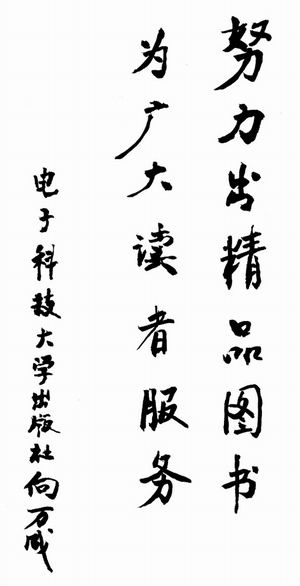 努力出精品图书
为广大读者服务
电子科技大学出版社向万成